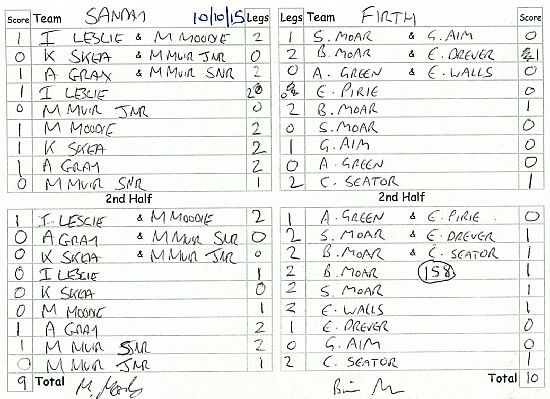 Score Team SANDAY 10/10/15 Legs Legs Team FIRTH Score
1 I LESLIE & M MOODIE 2 1 S. MOAR & G. AIM 0
0 K SKEA & M MUIR JNR 0 2 B. MOAR & E. DREVER 1
1 A GRAY & M MUIR SNR 2 0 A. GREEN & E. WALLS 0
1 I LESLIE 2 0 E. PIRIE 0
0 M MUIR JNR 0 2 B. MOAR 1
1 M MOODIE 2 0 S. MOAR 0
1 K SKEA 2 1 G. AIM 0
1 A GRAY 2 0 A. GREEN 0
0 M MUIR SNR 1 2 C. SEATOR 1
2nd Half 2nd Half
1 I LESLIE & M MOODIE 2 1 A. GREEN & E. PIRIE. 0
0 A GRAY & M MUIR SNR 0 2 S. MOAR & E. DREVER 1
0 K SKEA & M MUIR JNR 0 2 B. MOAR & C. SEATOR 1
0 I LESLIE 1 2 B. MOAR 158 1
0 K SKEA 0 2 S. MOAR 1
0 M MOODIE 1 2 E. WALLS 1
1 A GRAY 2 1 E. DREVER 0
1 M MUIR SNR 2 0 G. AIM 0
0 M MUIR JNR 1 2 C. SEATOR 1
9 Total Total 10